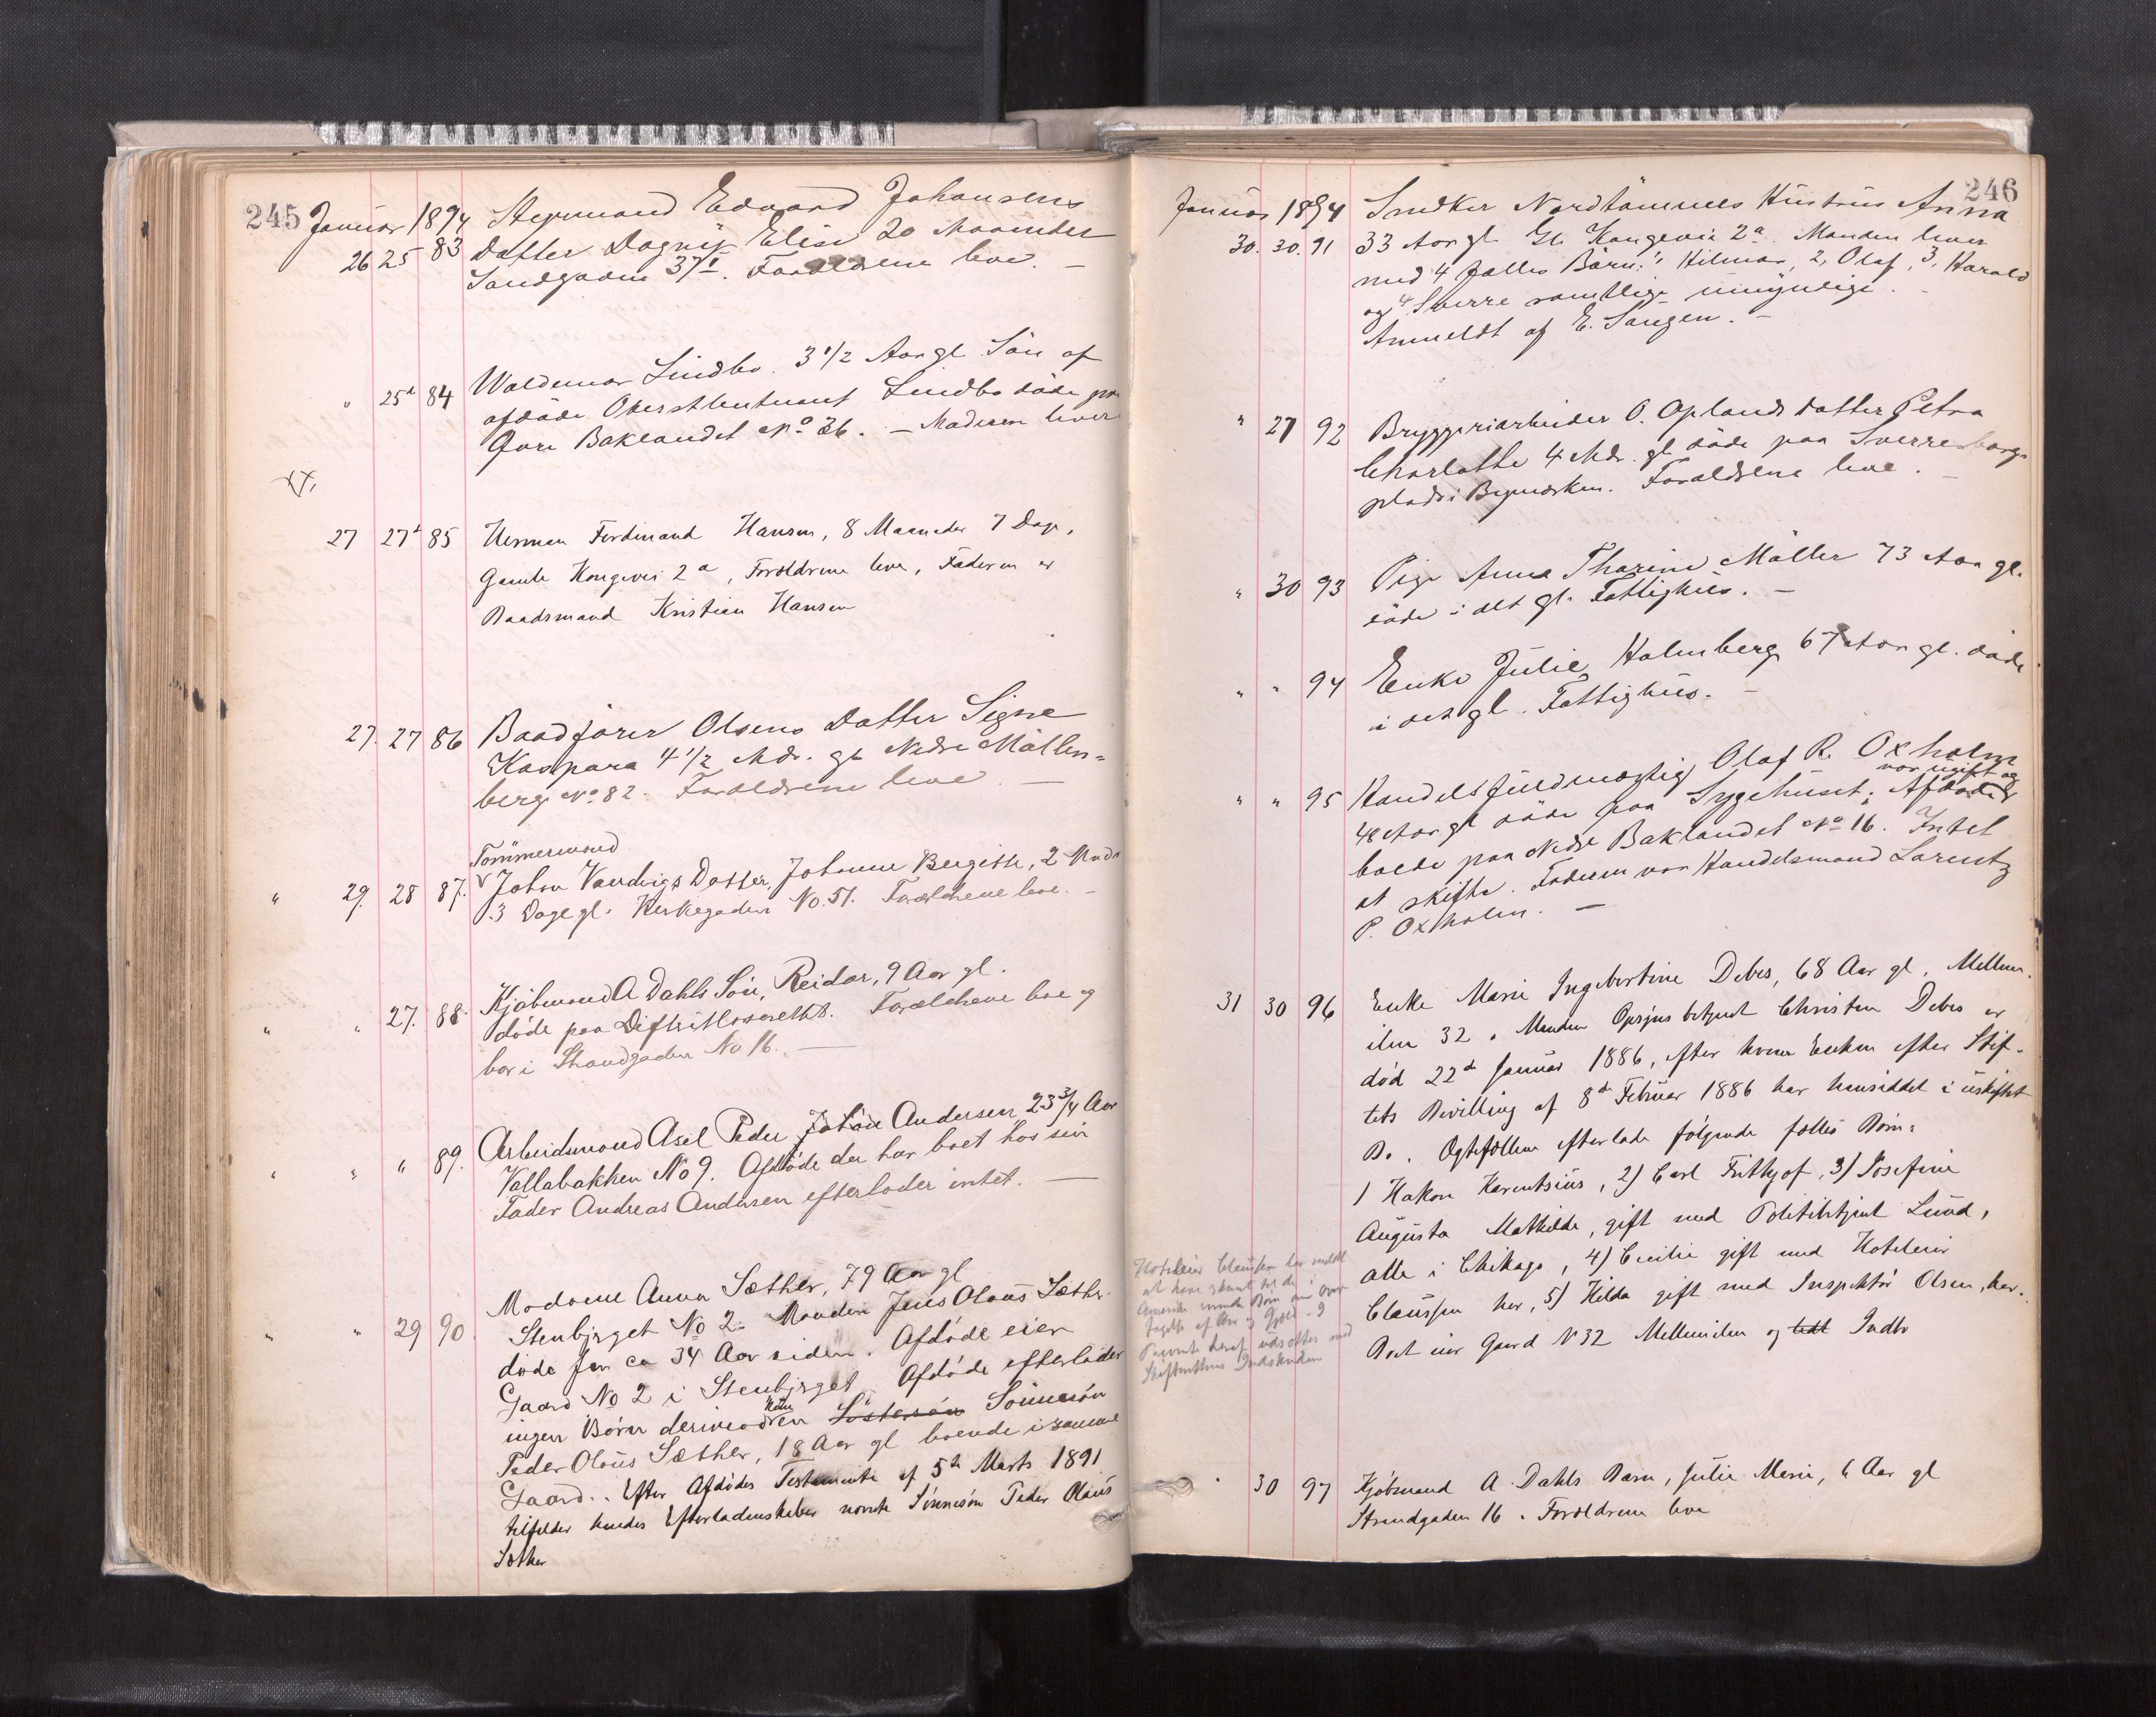 245
Januar 1894 Styrmand Edvard Johansens
26 25 83 Datter Dagny Elise 20 Maaneder
Sandgaden 37 I. Forældrene leve. –
" 25d 84 Waldemar Lindbo. 3 1/2 Aar gl. Søn af
afdøde Oberstleutnant Lindbo døde paa
Øvre Baklandet No 36. – Moderen lever
27 27d 85 Herman Ferdinand Hansen, 8 Maaneder 7 Dage,
Gamle Kongevei 2a, Forældrene leve, Faderen er
Baadsmand Kristian Hansen
27. 27 86 Baadfører Olsens Datter Signe
Kaspara 4 1/2 Mdr. gl. Nedre Møllen=
berg No 82. Forældrene leve. –
Tømmermand
" 29. 28 87. Johan Vandvigs Datter, Johanne Bergitte, 2 Mdr
3 Dage gl. Kirkegaden No. 51. Forældrene leve. –
" " 27. 88. Kjøbmand A Dahls Søn, Reidar, 9 Aar gl.
døde paa Difteritlasarethet. Forældrene leve og
bor i Strandgaden No 16. –
" " " 89. Arbeidsmand Axel Peder Johan Andersen 23 3/4 Aar
Vollabakken No 9. Afdøde der har boet hos sin
Fader Andreas Andersen efterlader intet. –
" " 29 90. Madame Anna Sæther, 79 Aar gl
Stenbjrget No 2. Manden Jens Olaus Sæther
døde for ca 34 Aar siden. Afdøde eier
Gaard No 2 i Stenbjrget. Afdøde efterlader
ingen Børn derimod kun en Søstersøn Sønnesøn
Peder Olaus Sæther, 18 Aar gl boende i samme
Gaard. . Efter Afdødes Testamente af 5te Marts 1891
tilfalder hendes Efterladenskaber nævnte Sønnesøn Peder Olaus
Sæther
246
Januar 1894 Snedker Nordtømmes Hustru Anna
30. 30. 91 33 Aar gl. Gl. Kongevei 2a. Manden lever
med 4 fælles Børn: 1, Hilmar, 2, Olaf, 3, Harald
og 4 Sverre samtlige umyndige. –
Anmeldt af E. Saugen. –
" 27 92 Bryggeriarbeider O. Oplands datter Petra
Charlotte 4 Mdr. gl. døde paa Sverresborgs
plads i Bymarken. Forældrene leve. –
" 30 93 Pige Anna Tharine Møller 73 Aar gl.
døde i det gl. Fattighus. –
" " 94 Enke Julie Holmberg 67 Aar gl. døde
i det gl. Fattighus. –
" " 95 Handelsfuldmægtig Olaf R. Oxholm
48 Aar gl døde paa Sygehuset; Afdøde var ugift og
boede paa Nedre Baklandet No 16. Intet
at skifte. Faderen var Handelsmand Larentz
P. Oxholm. –
31 30 96 Enke Marie Ingebertine Debes, 68 Aar gl, Mellem-
ilen 32. Manden Opsynsbetjent Christen Debes er
død 22de Januar 1886, efter hvem Enken efter Stif-
tets Bevilling af 8de Februar 1886 har hensiddet i uskiftet
Bo. Ægtefællene efterlade følgende fælles Børn:
1 Hakon Karentsius, 2) Carl Frithjof, 3) Josefine
Augusta Mathilde, gift med Politibetjent Lund,
alle i Chikago, 4) Cecilie gift med Hoteleier
Claussen her, 5) Hilda gift med Inspektør Olsen, her.
Boet eier Gaard No 32 Mellemilen og lidt Indbo
Hoteleier Claussen har meldt
at have skrevet til de i
Amerika værende Børn om Over-
tagelse af Arv og Gjæld. 9
" 30 97 Kjøbmand A. Dahls Barn, Julie Marie, 6 Aar gl
Strandgaden 16. Forældrene leve